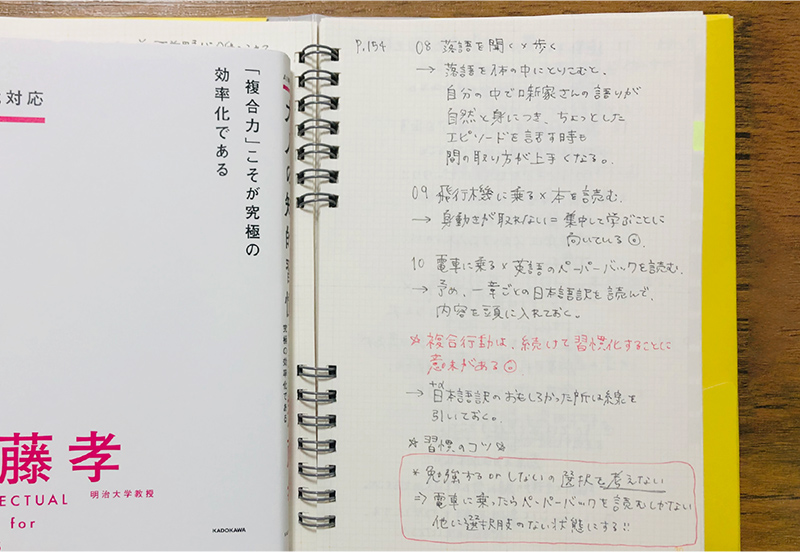 対応
「複合力」こそが究極の
効率化である
究極の効率化である
藤孝
ECTUAL
明治大学教授
for
KADOKAWA
P.154
08 落語を聞く×歩く
→ 落語を体の中にとりこむと、
自分の中で噺家さんの語りが
自然と身につき、ちょっとした
エピソードを話す時も
間の取り方が上手くなる。
09 飛行機に乗る×本を読む。
→ 身動きが取れない=集中して学ぶことに
向いている◎。
10 電車に乗る×英語のペーパーバックを読む。
→ 予め、一章ごとの日本語訳を読んで、
内容を頭に入れておく。
☆複合行動は、続けて習慣化することに
意味がある◎
→ 日本語訳のおもしろかった所は線を
引いておく。
☆習慣のコツ☆
* 勉強する or しないの選択を考えない
⇒ 電車に乗ったらペーパーバックを読むしかない
他に選択肢のない状態にする!!